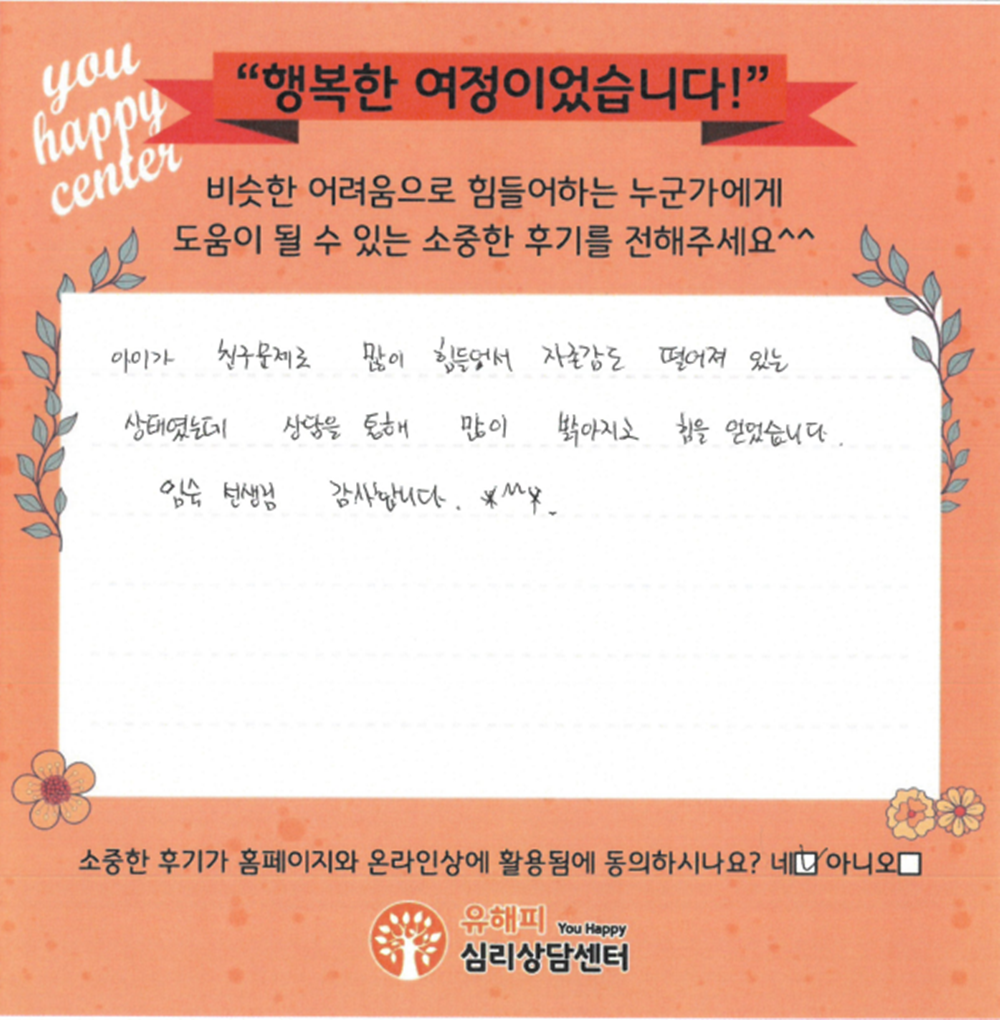 you
happy
center
“행복한 여정이었습니다!”
비슷한 어려움으로 힘들어하는 누군가에게
도움이 될 수 있는 소중한 후기를 전해주세요^^
아이가 친구문제로 많이 힘들어서 자존감도 떨어져 있는
상태였는데 상담을 통해 많이 밝아지고 힘을 얻었습니다.
선생님 감사합니다. *^^*
소중한 후기가 홈페이지와 온라인상에 활용됨에 동의하시나요? 네☑ 아니오☐
유해피 You Happy
심리상담센터